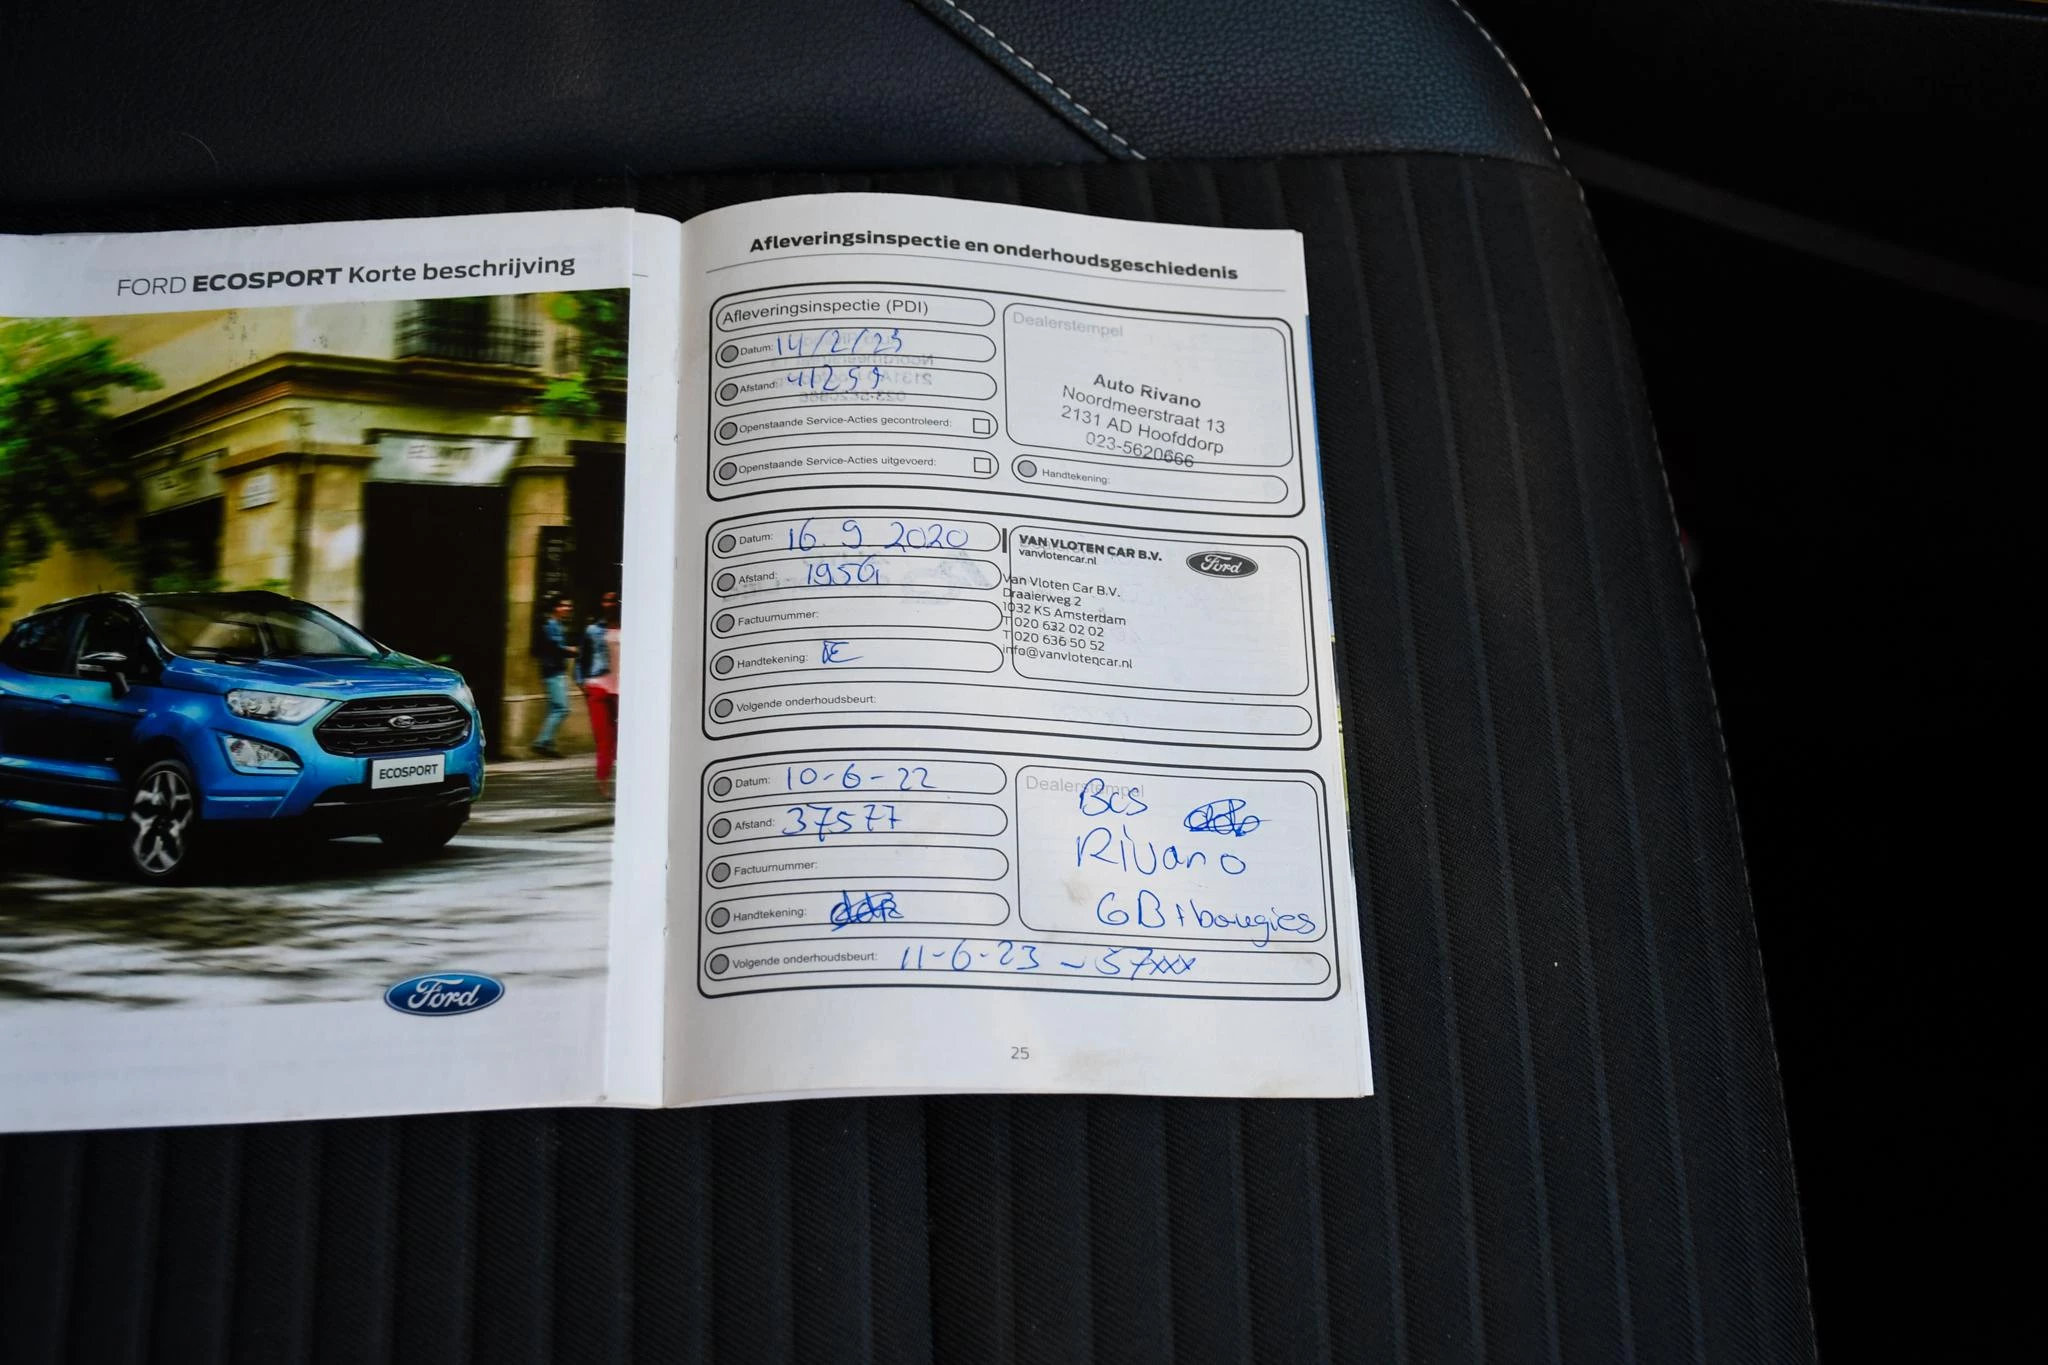 FORD ECOSPORT Korte beschrijving
ECOSPORT
Ford
Afleveringsinspectie en onderhoudsgeschiedenis
Afleveringsinspectie (PDI)
Datum: 14/2/23
Afstand: 41259
Openstaande Service-Acties gecontroleerd:
Openstaande Service-Acties uitgevoerd:
Dealerstempel
Auto Rivano
Noordmeerstraat 13
2131 AD Hoofddorp
023-5620666
Handtekening:
Datum: 16.9 2020
Afstand:
Factuurnummer:
Handtekening:
Volgende onderhoudsbeurt:
VAN VLOTEN CAR B.V.
vanvlotencar.nl
Ford
Van Vloten Car B.V.
Draaierweg 2
1032 KS Amsterdam
T 020 632 02 02
T 020 636 50 52
info@vanvlotencar.nl
Datum: 10-6-22
Afstand: 37577
Factuurnummer:
Handtekening:
Dealerstempel
BCS
Rivano
GB+bougies
Volgende onderhoudsbeurt: 11-6-23 - 57xxx
25